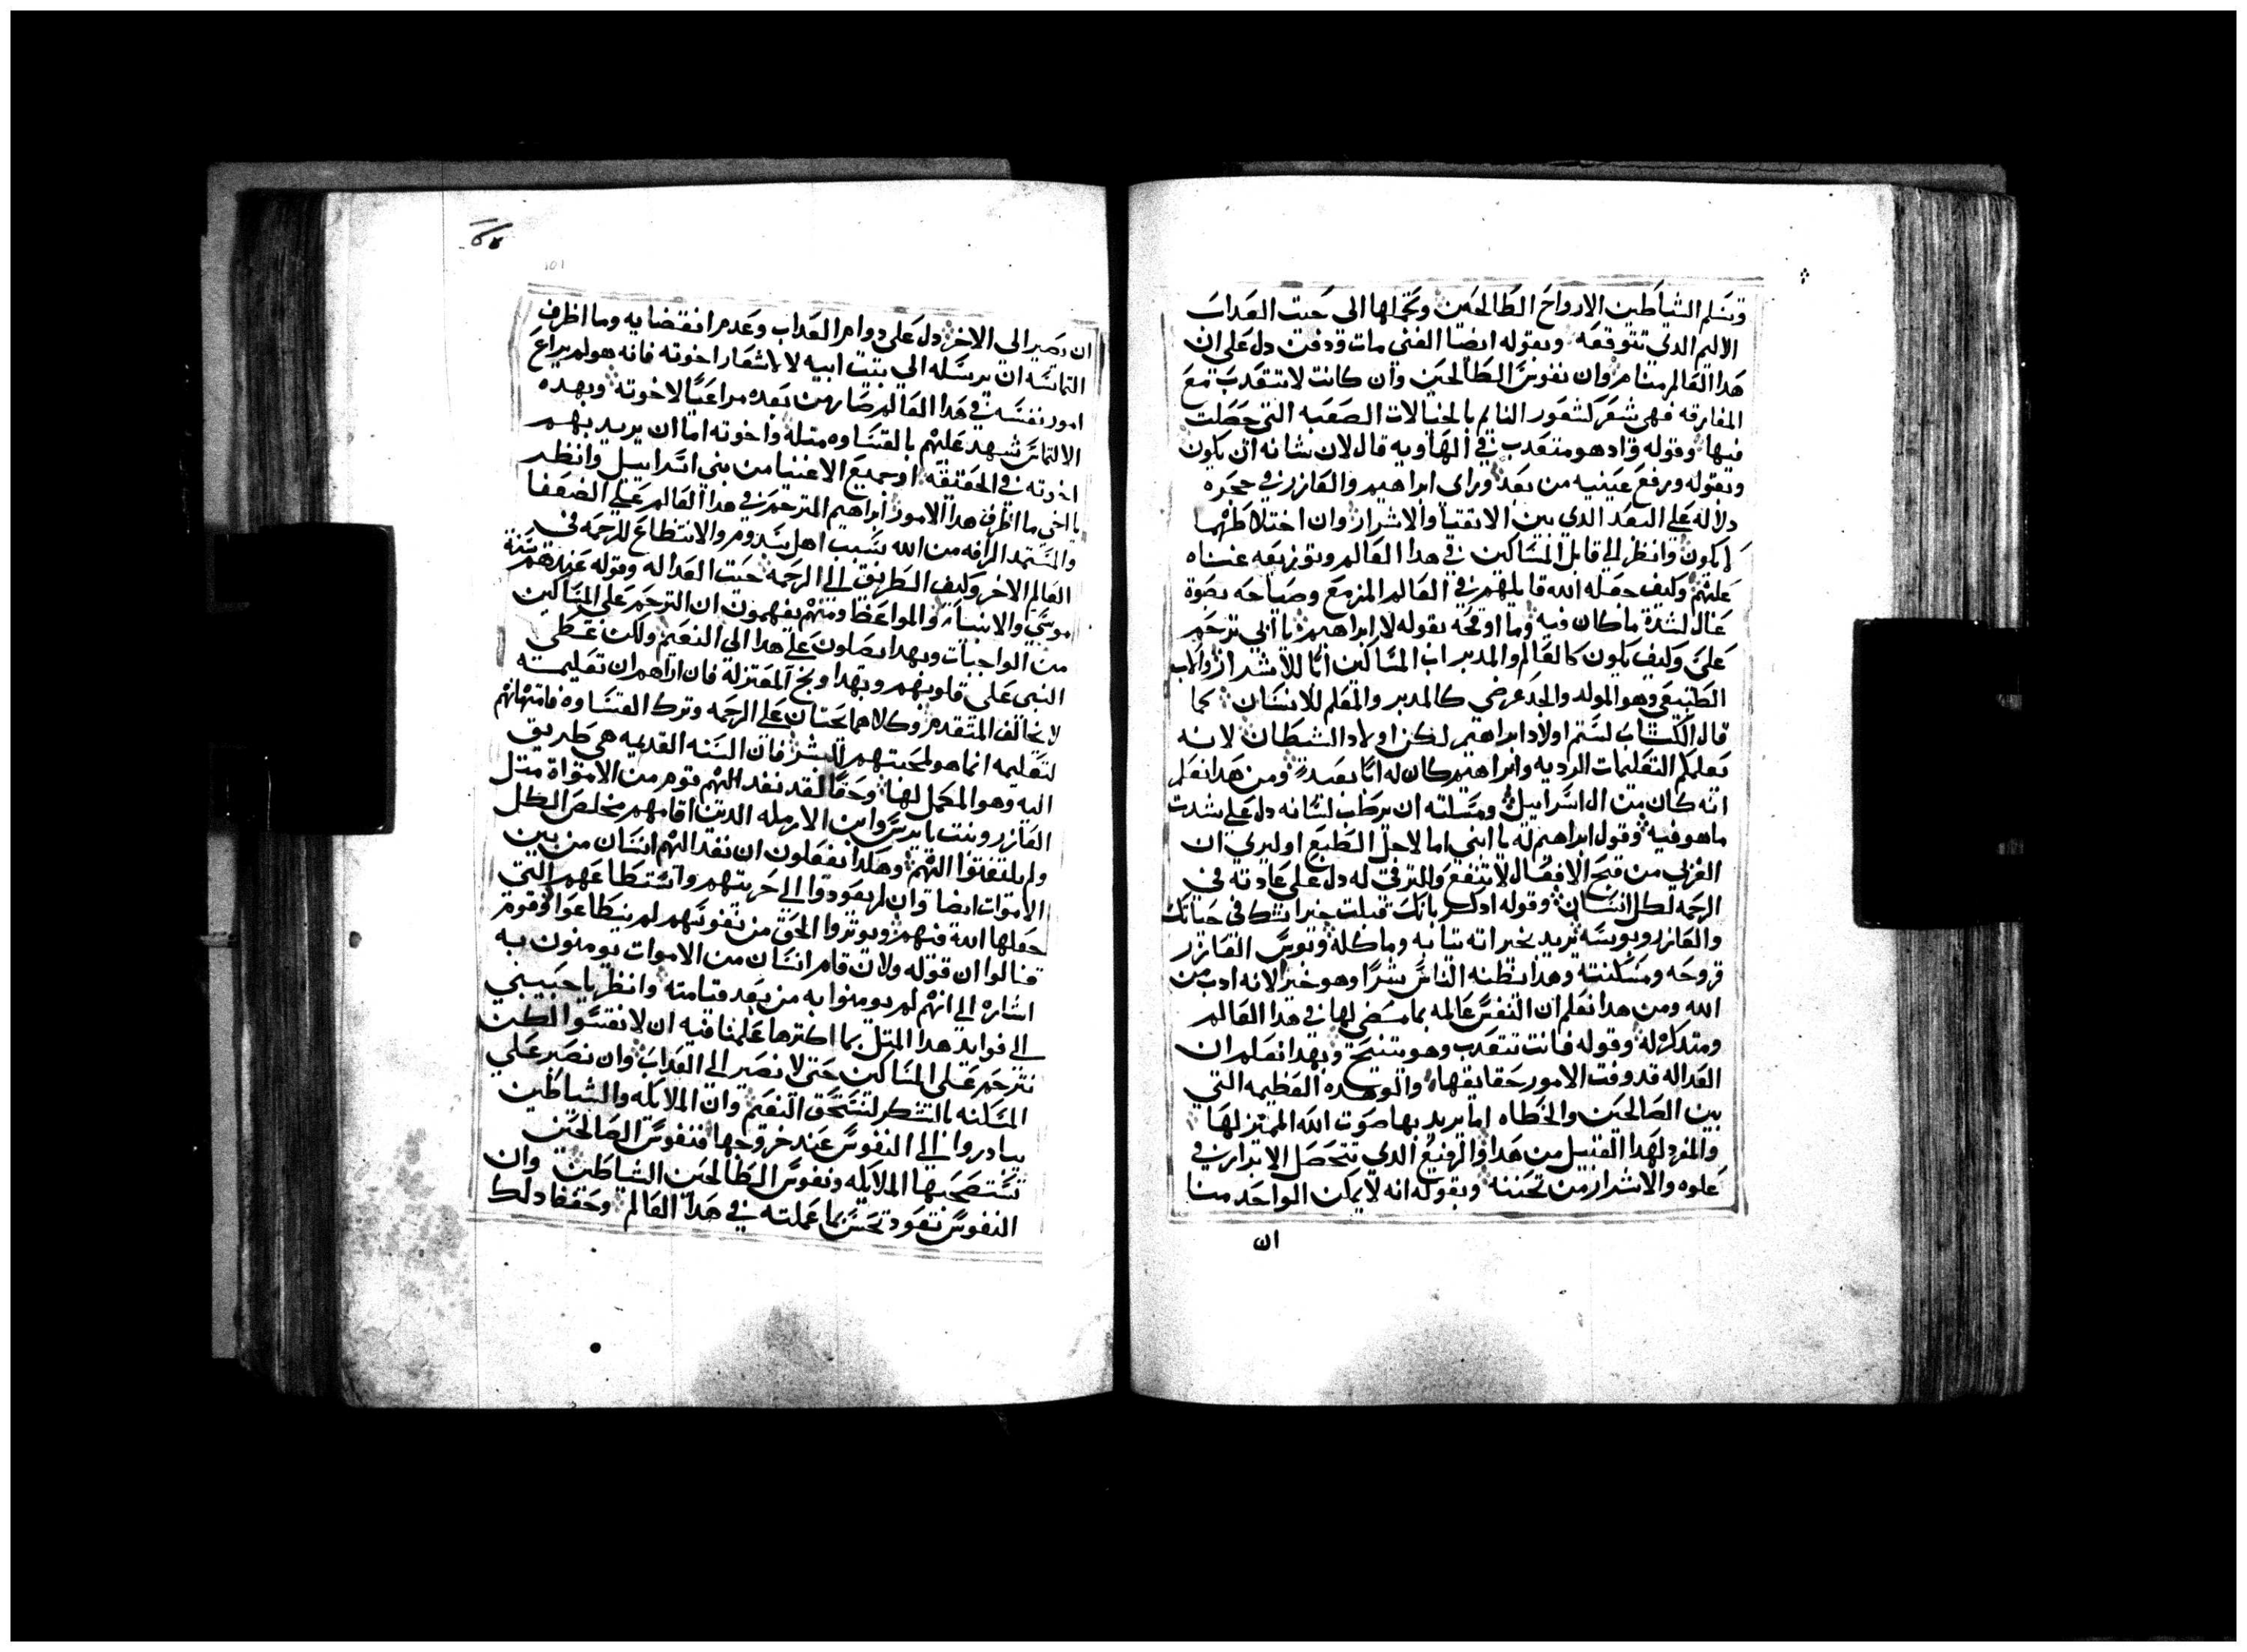 وتسلم الشياطين الارواح الطالحين وتحملها الى حيت العداب
الاليم الدي تتوقعه وبقوله ايضا الغني مات ودفن دل على ان
هدا العالم منام وان نفوس الطالحين وان كانت لا تتعدب مع
المفارقه فهى شعر كشعور النايم بالخيالات الصعبه التي حصلت
فيها وقوله واد هو متعدب في الهاويه قال لان شانه ان يكون
وبقوله ورفع عينيه من بعد وراى ابراهيم والعازر في حجره
دلاله على البعد الدي بين الاتقيا والاشرار وان اختلاطهما
لا يكون وانظر الي قابل المساكين في هدا العالم وتوزيعه غناه
عليهم وكيف جعله الله قابلهم في العالم المزمع وصياحه بصوة
عال لشدة ما كان فيه وما اوقحه بقوله لابراهيم يا ابي ترحم
علي وكيف يكون كالعالم والمدبر اب المساكين ابا للاشرار والاب
الطبيعي وهو المولد والجد عرضي كالمدبر والمعلم للانسان كما
قال الكتاب لستم اولاد ابراهيم لكن اولاد الشيطان لانه
يعلمكم التعليمات الرديه وابراهيم كان له ابا بعيد ومن هدا نعلم
انه كان من ال اسراييل ومسلته ان يرطب لسانه دل على شدت
ما هو فيه وقول ابراهيم له يا ابني اما لاجل الطبع او ليري ان
العزي من قبح الافعال لا تنفع والمترفق له دل على عادته في
الرحمه لكل انسان وقوله ادكر بانك قبلت خيراتك في حياتك
والعازر وبوسه يريد بخيراته تيابه وماكله وبوس العازر
قروحه ومسكنته وهدا يظنه الناس شرا وهو خير لانه ادب من
الله ومن هدا نعلم ان النفس عالمه بما مضى لها في هدا العالم
ومتدكره له وقوله فانت تتعدب وهو يتنيح وبهدا نعلم ان
العداله قد وفت الامور حقايقها والوهده العظيمه التي
بين الصالحين والخطاه اما يريد بها صوت الله المميز لها
والمفرد لهدا القبيل من هدا والرفيع الدي تتحصل الابرار في
علوه والاشرار من تحننه وبقوله انه لا يمكن الواحد منا
ان
ان يصير الى الاخر دل على دوام العداب وعدم انقضايه وما اظرف
التماسه ان يرسله الي بيت ابيه لا لاشعار اخوته فانه هو لم يراع
امور نفسه في هدا العالم صار من بعده مراعيا لاخوته وبهده
الالتماس شهد عليهم بالقساوه متله واخوته اما ان يريد بهم
اخوته في الحقيقه او جميع الاغنيا من بني اسراييل وانظر
يا اخي ما اظرف هدا الامور ابراهيم المترحم في هدا العالم على الضعفا
والمستمد الرافه من الله بسبب اهل سدوم والانقطاع للرحمه في
العالم الاخر وكيف الطريق الى الرحمه حيت العداله وقوله عندهم سنة
موسي والانبيا والمواعظ ومنهم يفهمون ان الترحم على المساكين
من الواجبات وبهدا يصلون على هدا الى النعيم ولكن غطى
النبى على قلوبهم وبهدا وبخ المعتزلة فان اراهم ان تعليمه
لا يخالف المتقدم وكلاهما يحتان على الرحمه وترك القساوه فامتهانهم
لتعليمه انما هو لمحبتهم للشر فان السنه القديمه هي طريق
اليه وهو المكمل لها وحقا لقد نفد اليهم قوم من الامواة متل
العازر وبنت يايرس وابن الارمله الدين اقامهم مخلص الكل
ولم يلتفتوا اليهم وهكدا يفعلون ان نفد اليهم انسان من بين
الاموات ايضا وان لم يعودوا الى حريتهم واستطاعهم التي
جعلها الله فيهم ويوتروا الحق من نفوسهم لم يستطاعوا وقوم
قالوا ان قوله ولا ان قام انسان من الاموات يومنون به
اشاره الى انهم لم يومنوا به من بعد قيامته وانظر يا حبيبي
الى فوايد هدا المتل بما اكترها علمنا فيه ان لا نقسوا لكن
نترحم على المساكين حتى لا نصير الى العداب وان نصبر على
المسكنه بالشكر لنستحق النعيم وان الملايكه والشياطين
يبادروا الى النفوس عند خروجها فنفوس الصالحين
تستصحبها الملايكه ونفوس الطالحين الشياطين وان
النفوس تعود تحس بما عملته في هدا العالم وحققا دلك